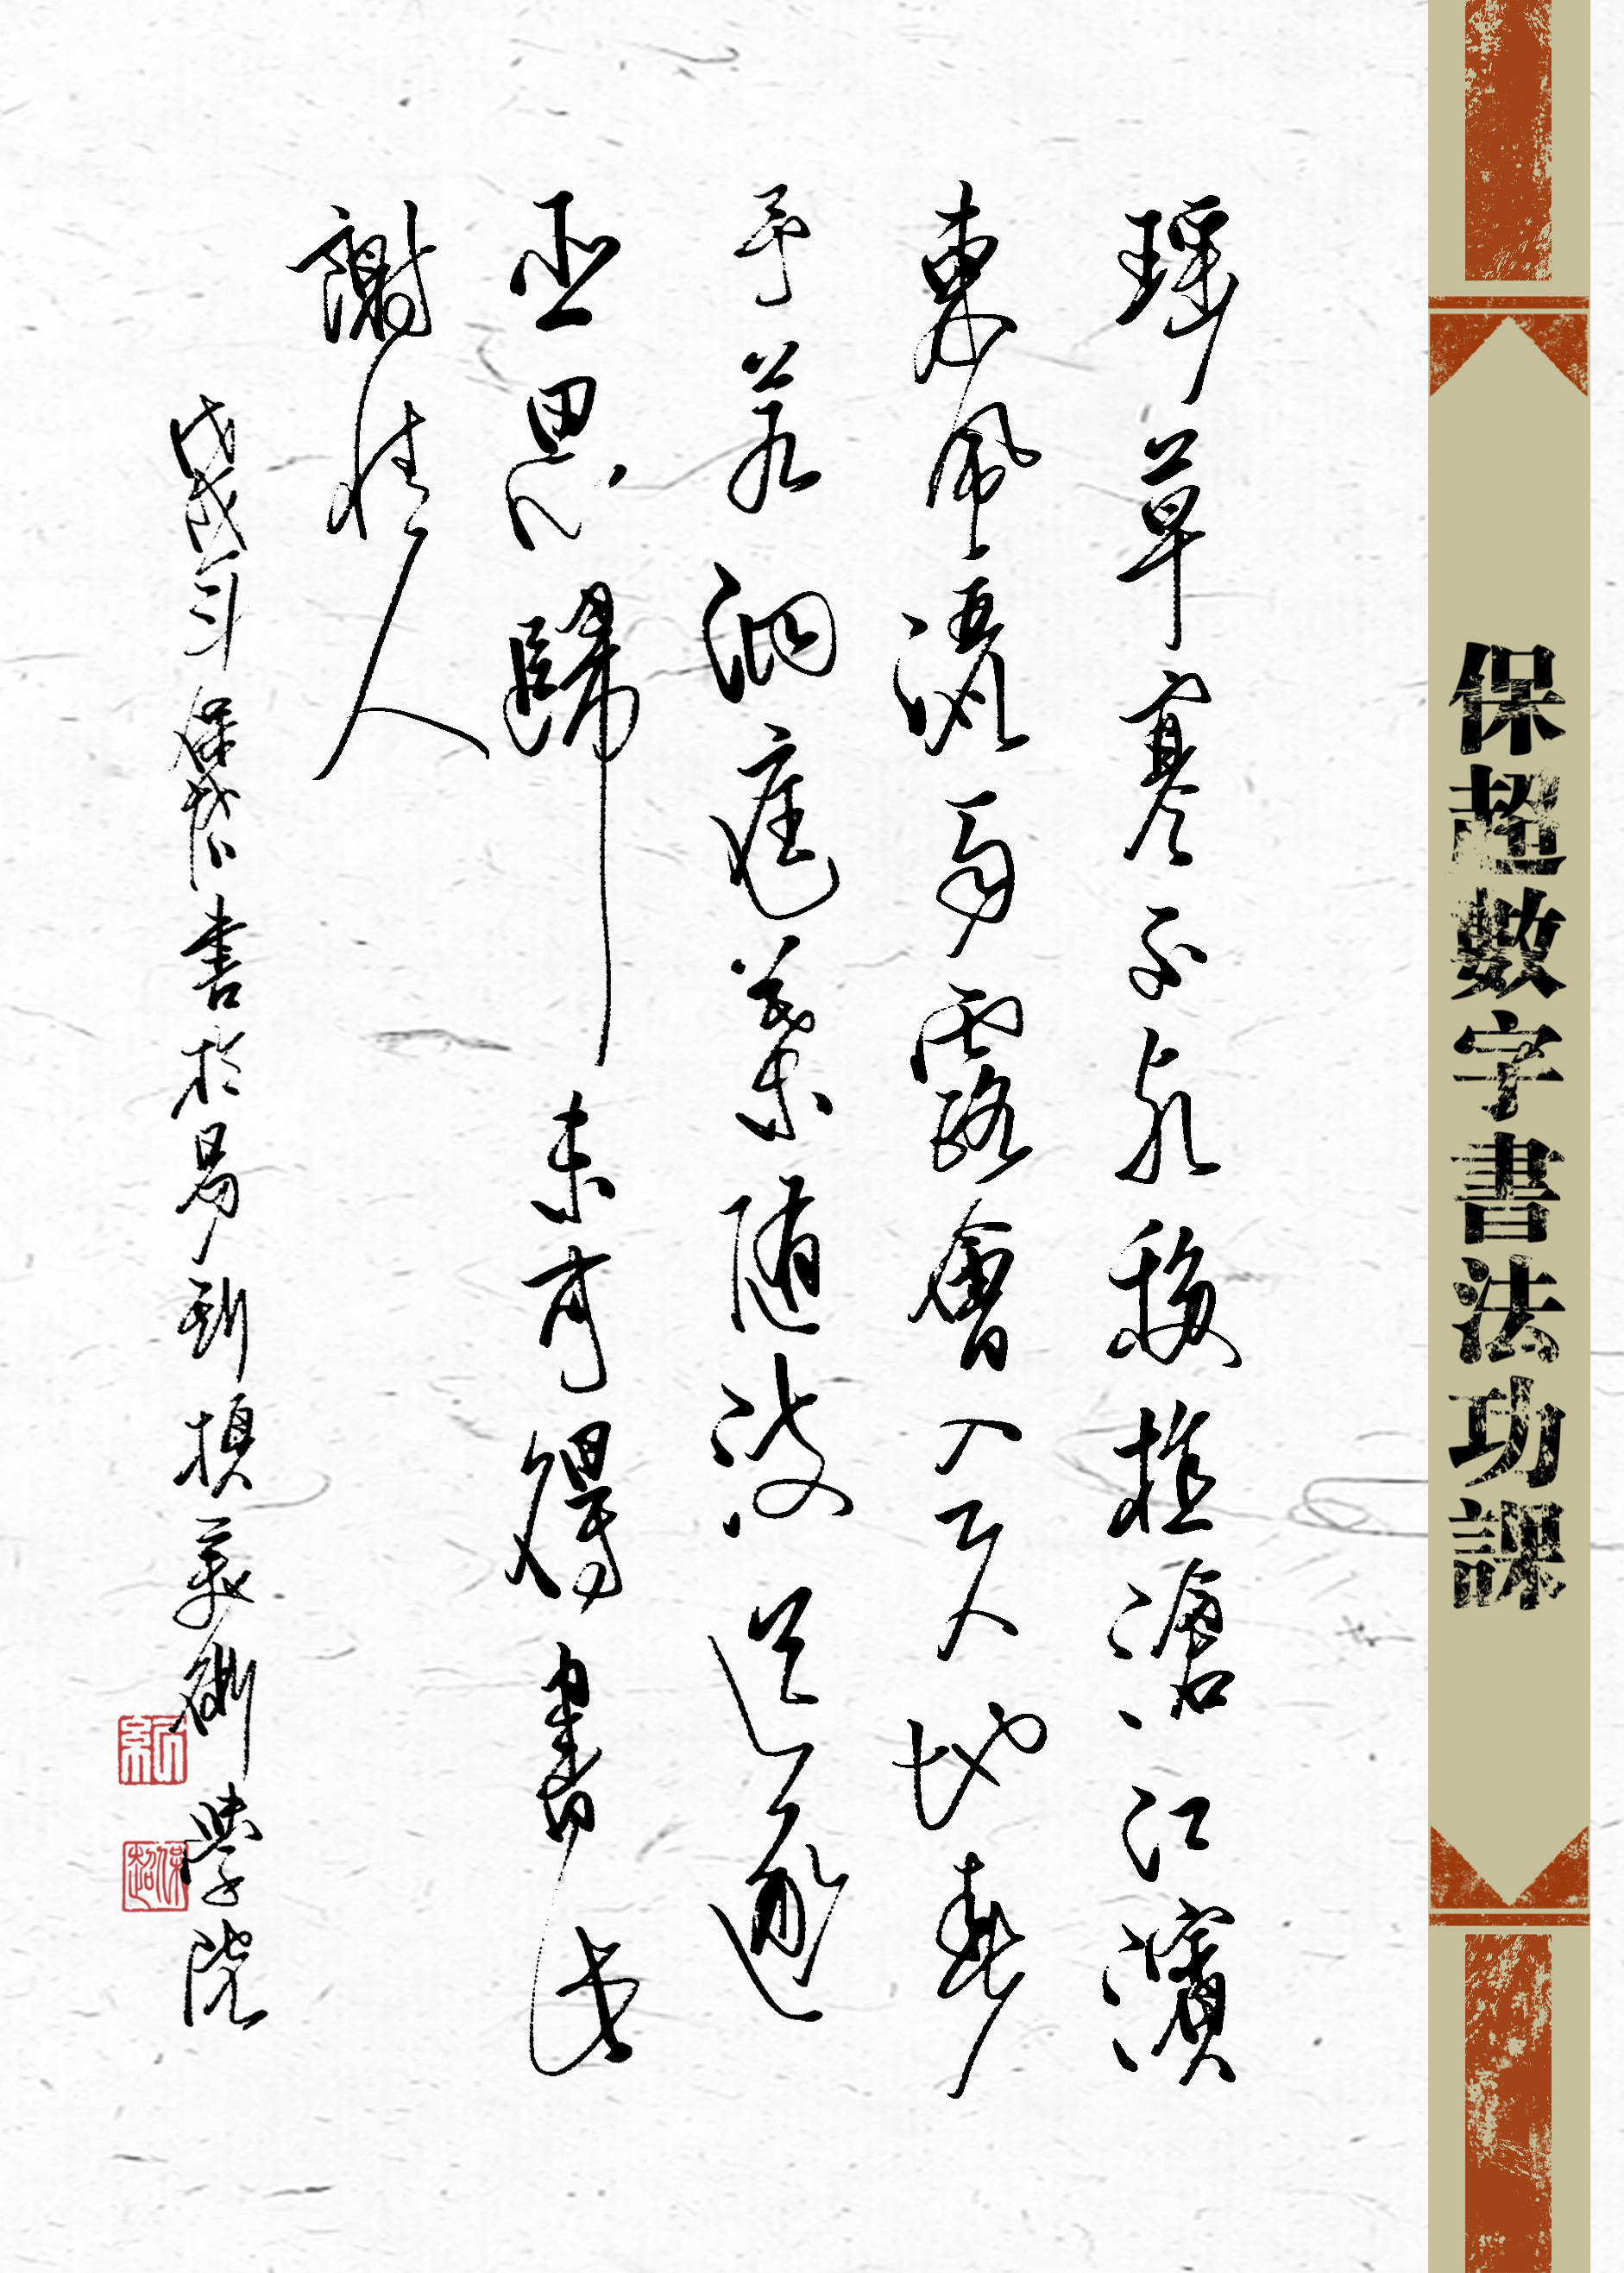 保超數字書法功課
瑶草寒不死移植滄江濱
東風灑雨露會入天地春
予若洞庭葉随波送逐
臣思歸未可得書此
謝情人
戊戌年保超書於易斯頓美術學院
保超